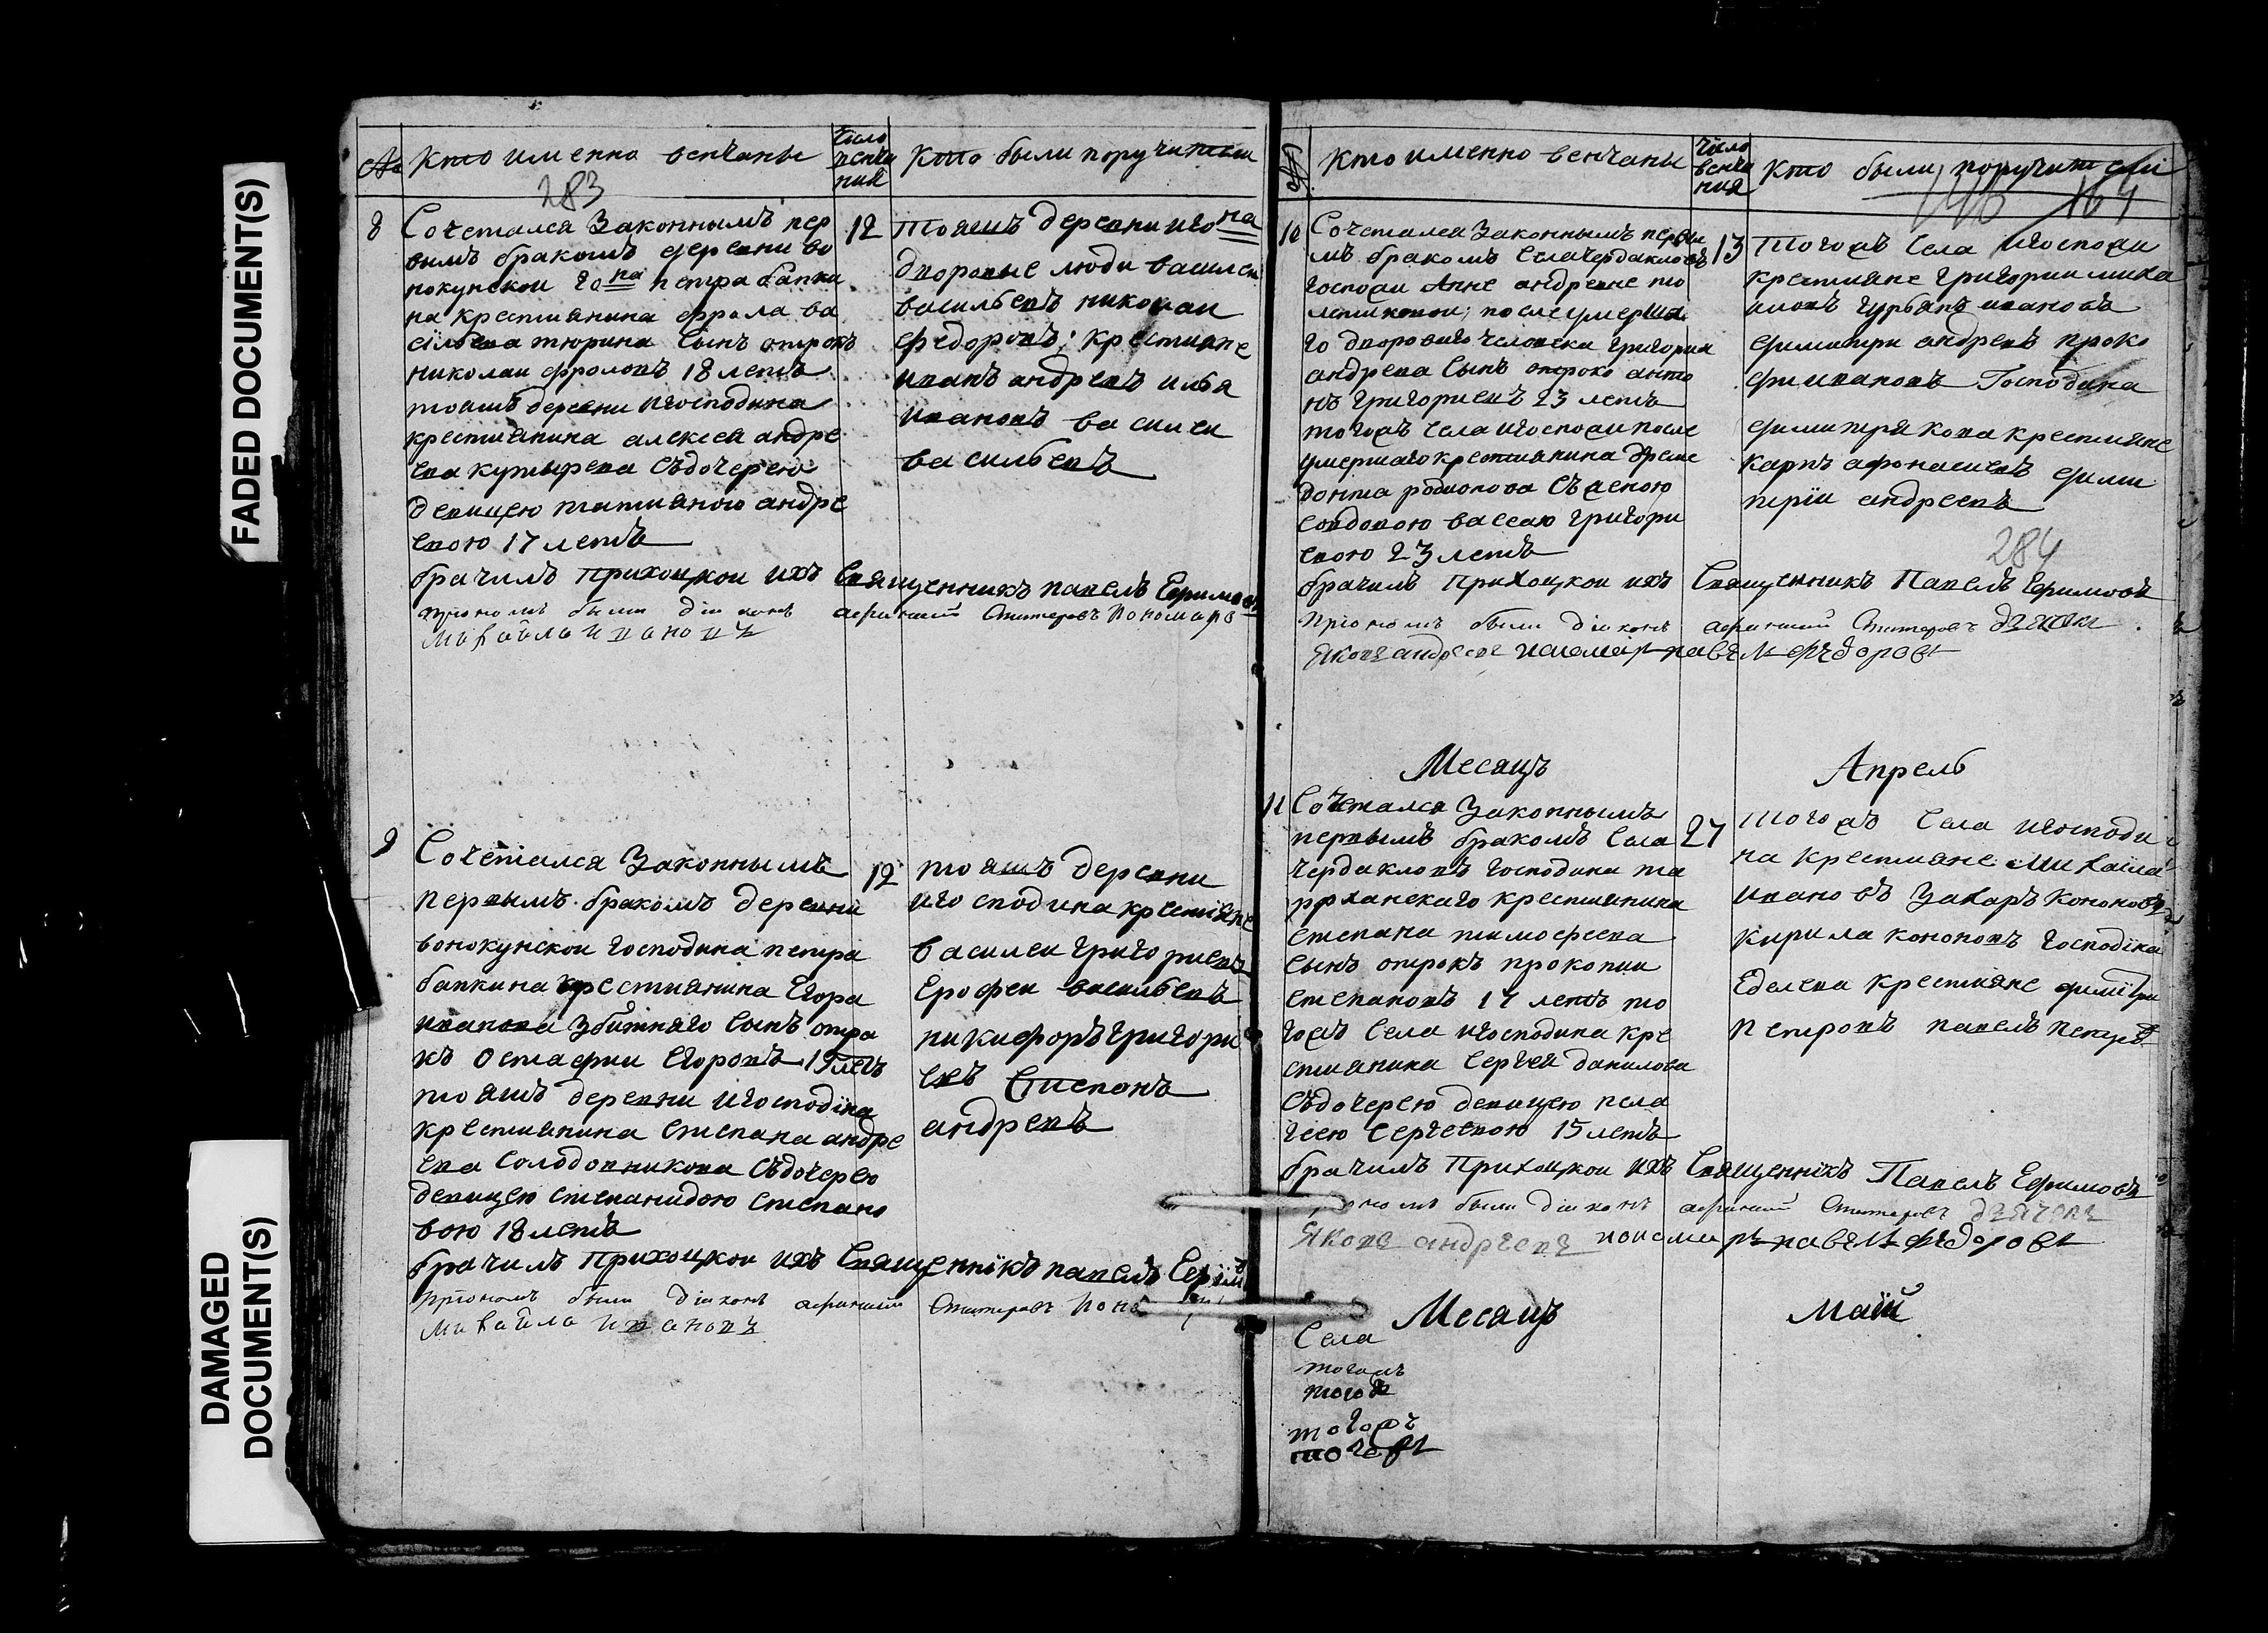 FADED DOCUMENT(S)
DAMAGED
DOCUMENT(S)
№ Кто именно венчаны
число
венча
ния
Кто были поручители
283
8
Сочетался Законнымъ пер
вымъ бракомъ деревни во
нокунскои го на петра бапки
на крестиянина фрола ва
сильева тюрина Сынъ отрокъ
николаи фроловъ 18 летъ
тояжъ деревни игосподина
крестиянина алексея андре
ева кутырева Съдочерею
девицею татияною андре
евою 17 летъ
12
тояжъ деревни иго на
дворовые люди василеи
васильевъ николаи
федоровъ; крестияне
иванъ андреевъ илья
ивановъ василеи
васильевъ
брачилъ приходцкои ихъ Священникъ павелъ Ефимовъ
притомъ были диаконъ Пономаръ
михаила ивановъ
9
Сочетался Законнымъ
первымъ бракомъ деревни
вонокунскои господина петра
бапкина крестиянина Егора
иванова збитняго Сынъ отро
къ Остафии Егоровъ 19 летъ
тояжъ деревни игосподина
крестиянина Степана андре
ева Солодовникова Съдочерею
девицею степанидою степано
вою 18 летъ
12
тояжъ деревни
игосподина крестияне
василеи григориевъ
Ерофеи васильевъ
никифоръ григори
евъ Степанъ
андреевъ
брачилъ приходцкои ихъ Священникъ павелъ Ефим
притомъ были диаконъ
михаила ивановъ
Кто именно венчаны
число
венча
ния
Кто были поручители
164
10
Сочетался Законнымъ первы
мъ бракомъ Села чердаковъ
госпожи Анне андревне то
после умерша
го дворового человека григория
андреева Сынъ отрокъ анто
нъ григориевъ 23 летъ
тогожъ Села игоспожи после
умершаго крестиянина
родионова Съ женою
вдовою васою григори
евою 23 летъ
13
Тогожъ Села игоспожи
крестияне григории миха
иловъ гурьянъ ивановъ
димитри андреевъ проко
фи ивановъ Господина
димитрякова крестияне
карпъ афонасиевъ дими
трiи андреевъ
284
брачилъ Приходцкои ихъ Священникъ Павелъ Ефимовъ
притомъ были диаконъ дьячокъ
Яковъ андреевъ пономаръ павелъ федоровъ
Месяцъ Апрель
11
Сочетался Законнымъ
первымъ бракомъ Села
чердаковъ господина та
рханскаго крестиянина
степана тимофеева
сынъ отрокъ прокопии
степановъ 17 летъ то
гожъ Села игосподина кре
стиянина Сергея данилова
Съдочерею девицею пела
геею Сергеевою 15 летъ
27
Тогожъ Села игосподи
на крестияне Михаила
ивановъ Захаръ Кононовъ
Кирила кононовъ господина
Еделева крестияне димитри
петровъ павелъ петровъ
брачилъ Приходцкои ихъ Священникъ Павелъ Ефимовъ
притомъ были диаконъ дьячокъ
Яковъ андреевъ пономаръ павелъ федоровъ
Месяцъ Маiй
Села
тогожъ
тогожъ